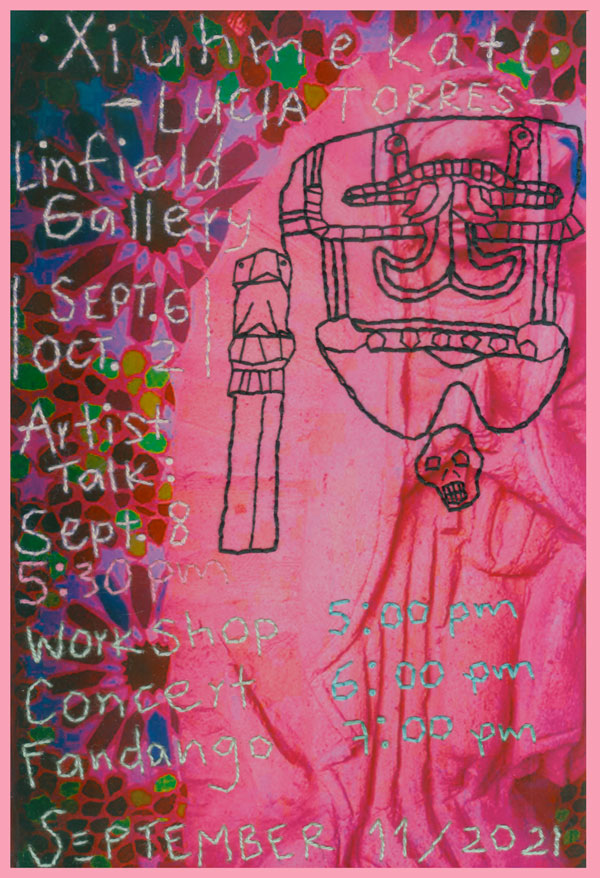 ·Xiuhmekatl·
- LUCIA TORRES -
Linfield
Gallery
| SEPT. 6 |
| OCT. 2 |
Artist
Talk:
Sept. 8
5:30 pm
WorkShop 5:00 pm
Concert 6:00 pm
Fandango 7:00 pm
SEPTEMBER 11/2021